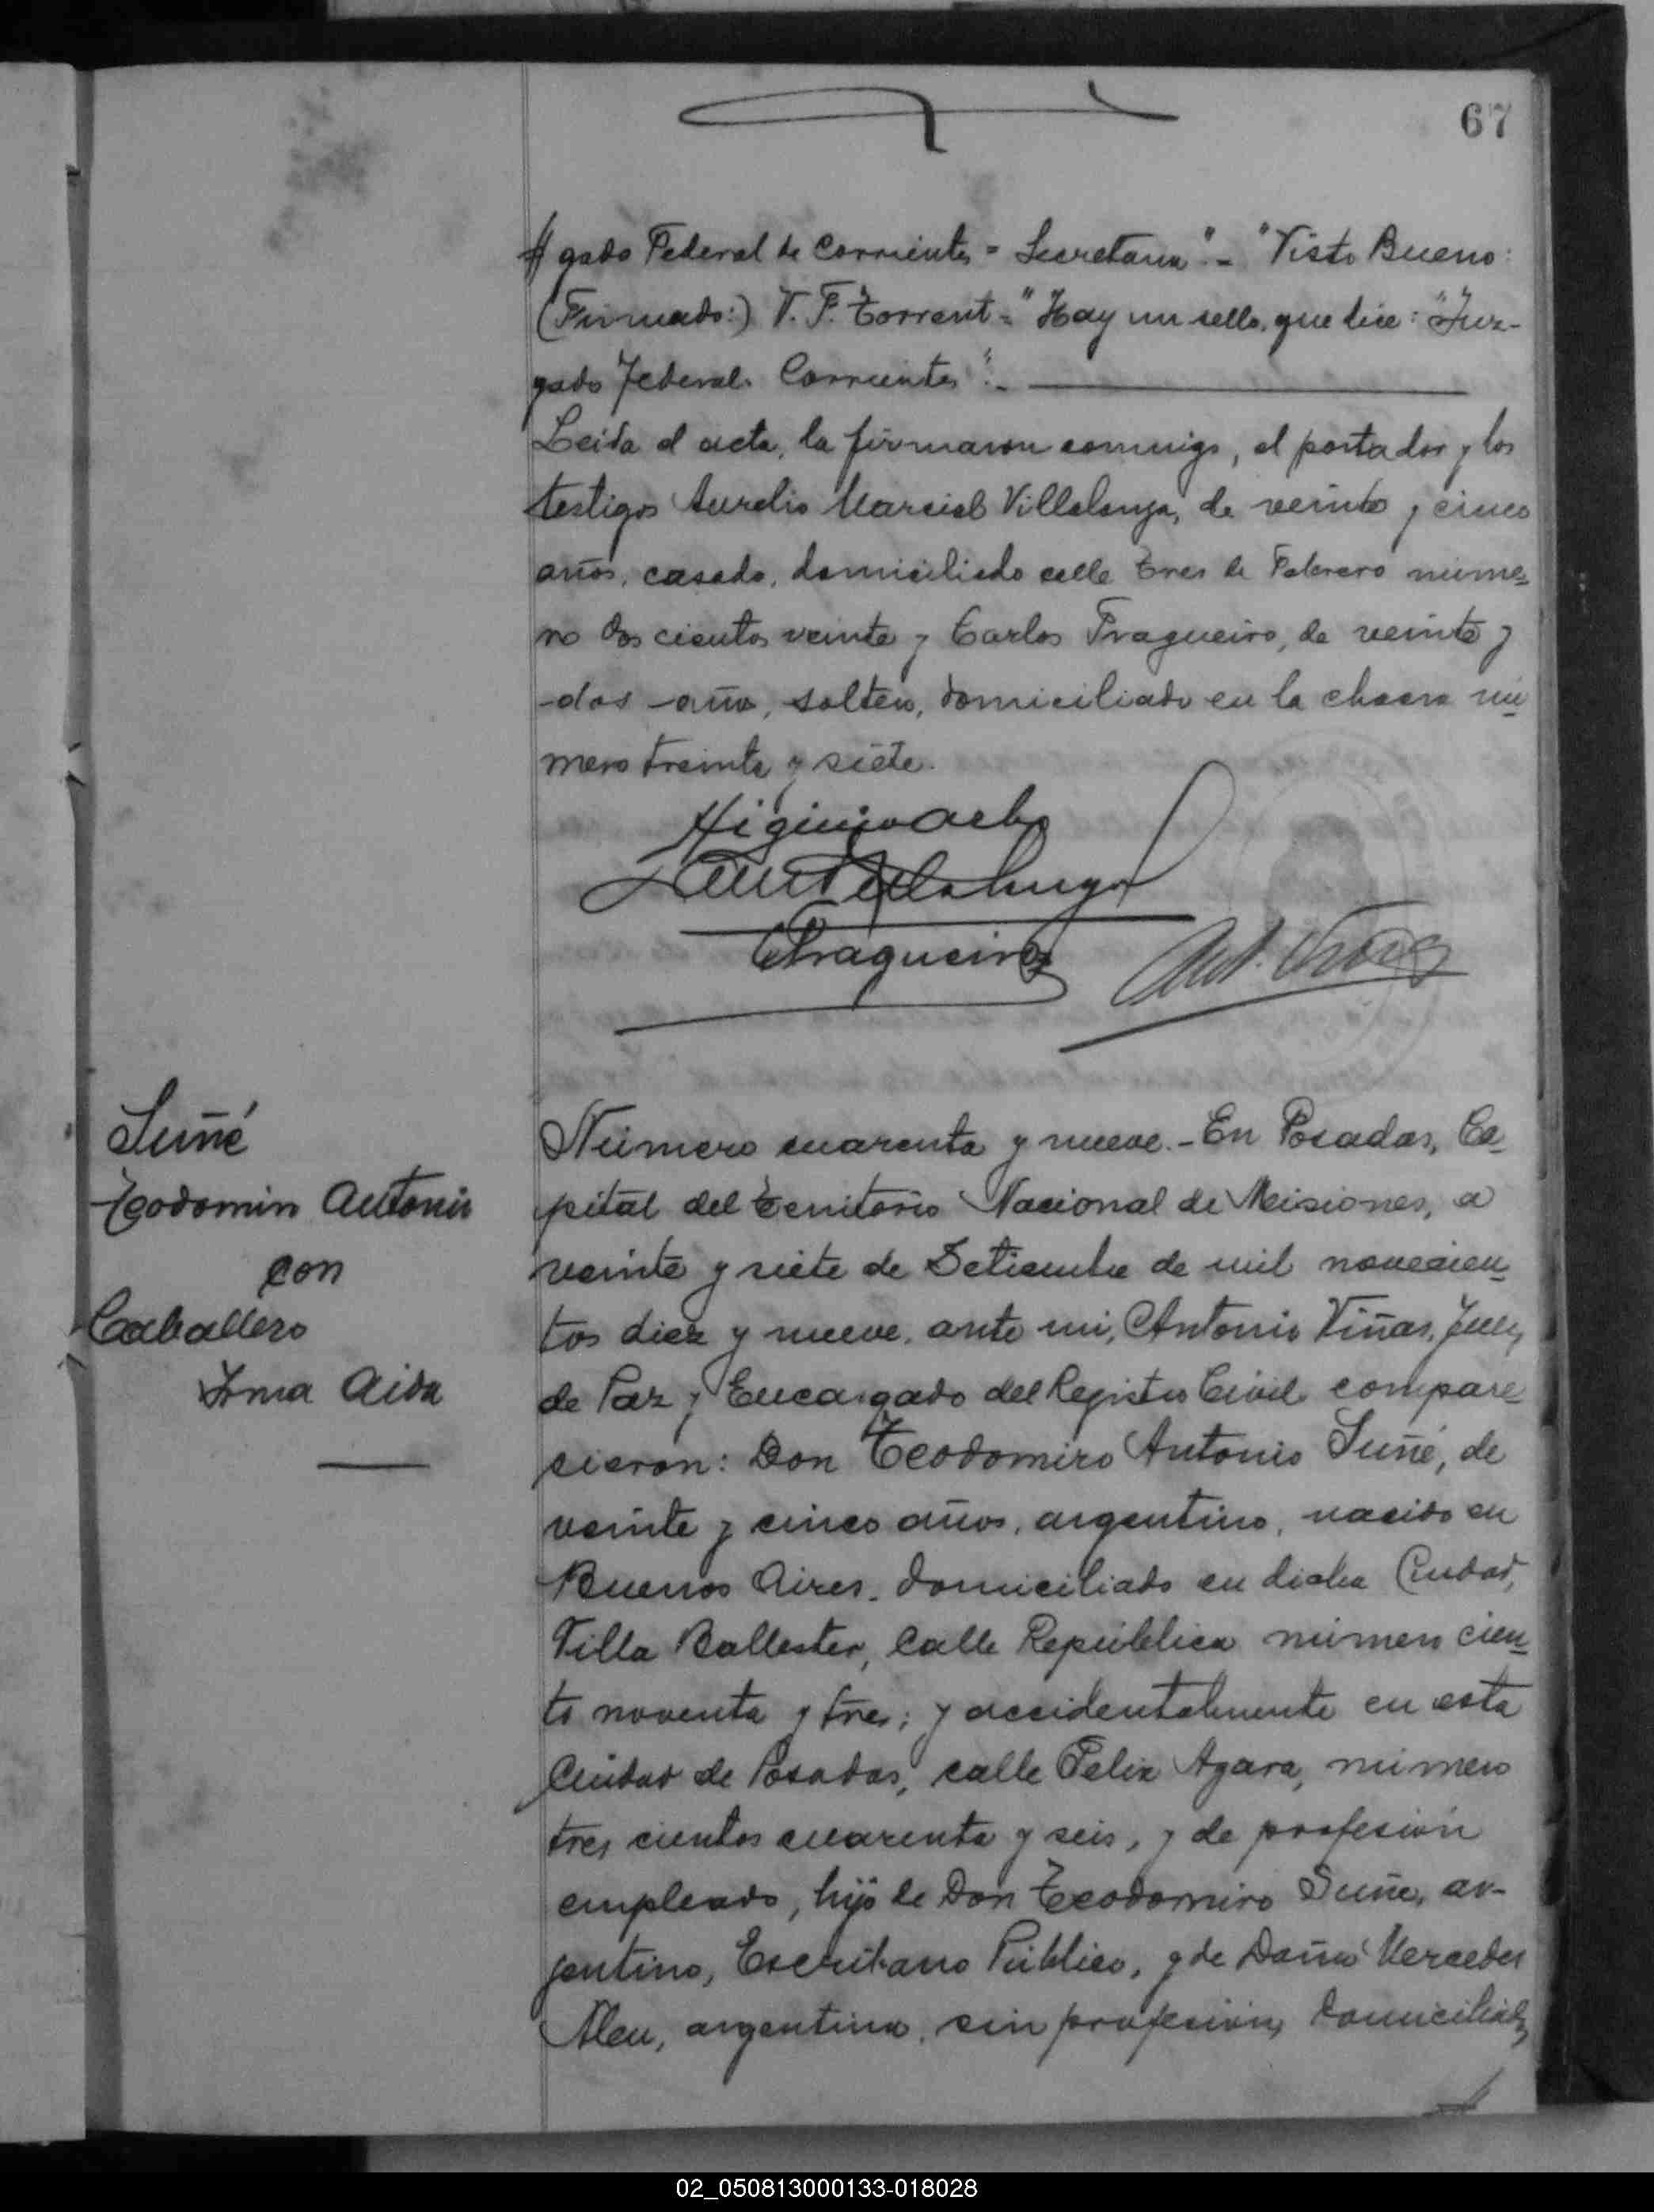 67
gado Federal de Corrientes = Secretaria" = "Visto Bueno:
(Firmado:) V. F. Torrent = "Hay un sello, que dice: "Juz-
gado Federal. Corrientes".-
Leida el acta, la firmaron conmigo, el portador y los
testigos Aurelio Marcial Villalonga, de veinte y cinco
años, casado, domiciliado calle Tres de Febrero núme-
ro dos cientos veinte y Carlos Fragueiro, de veinte y
dos años, soltero, domiciliado en la chacra nú
mero treinta y siete.
Higinio
Villalonga
CFragueiro
Ant. Viñas
Suñé
Teodomiro Antonio
con
Caballero
Irma Aida
Número cuarenta y nueve.- En Posadas, Ca-
pital del Territorio Nacional de Misiones, a
veinte y siete de Setiembre de mil novecien-
tos diez y nueve, ante mi, Antonio Viñas, Juez
de Paz y Encargado del Registro Civil compare-
cieron: Don Teodomiro Antonio Suñé, de
veinte y cinco años, argentino, nacido en
Buenos Aires, domiciliado en dicha Ciudad,
Villa Ballester, Calle República número cien-
to noventa y tres; y accidentalmente en esta
Ciudad de Posadas, calle Felix Azara, número
tres cientos cuarenta y seis, y de profesión
empleado, hijo de Don Teodomiro Suñé, ar-
gentino, Escribano Público, y de Doña Mercedes
Aleu, argentina, sin profesión, domiciliados
02_050813000133-018028